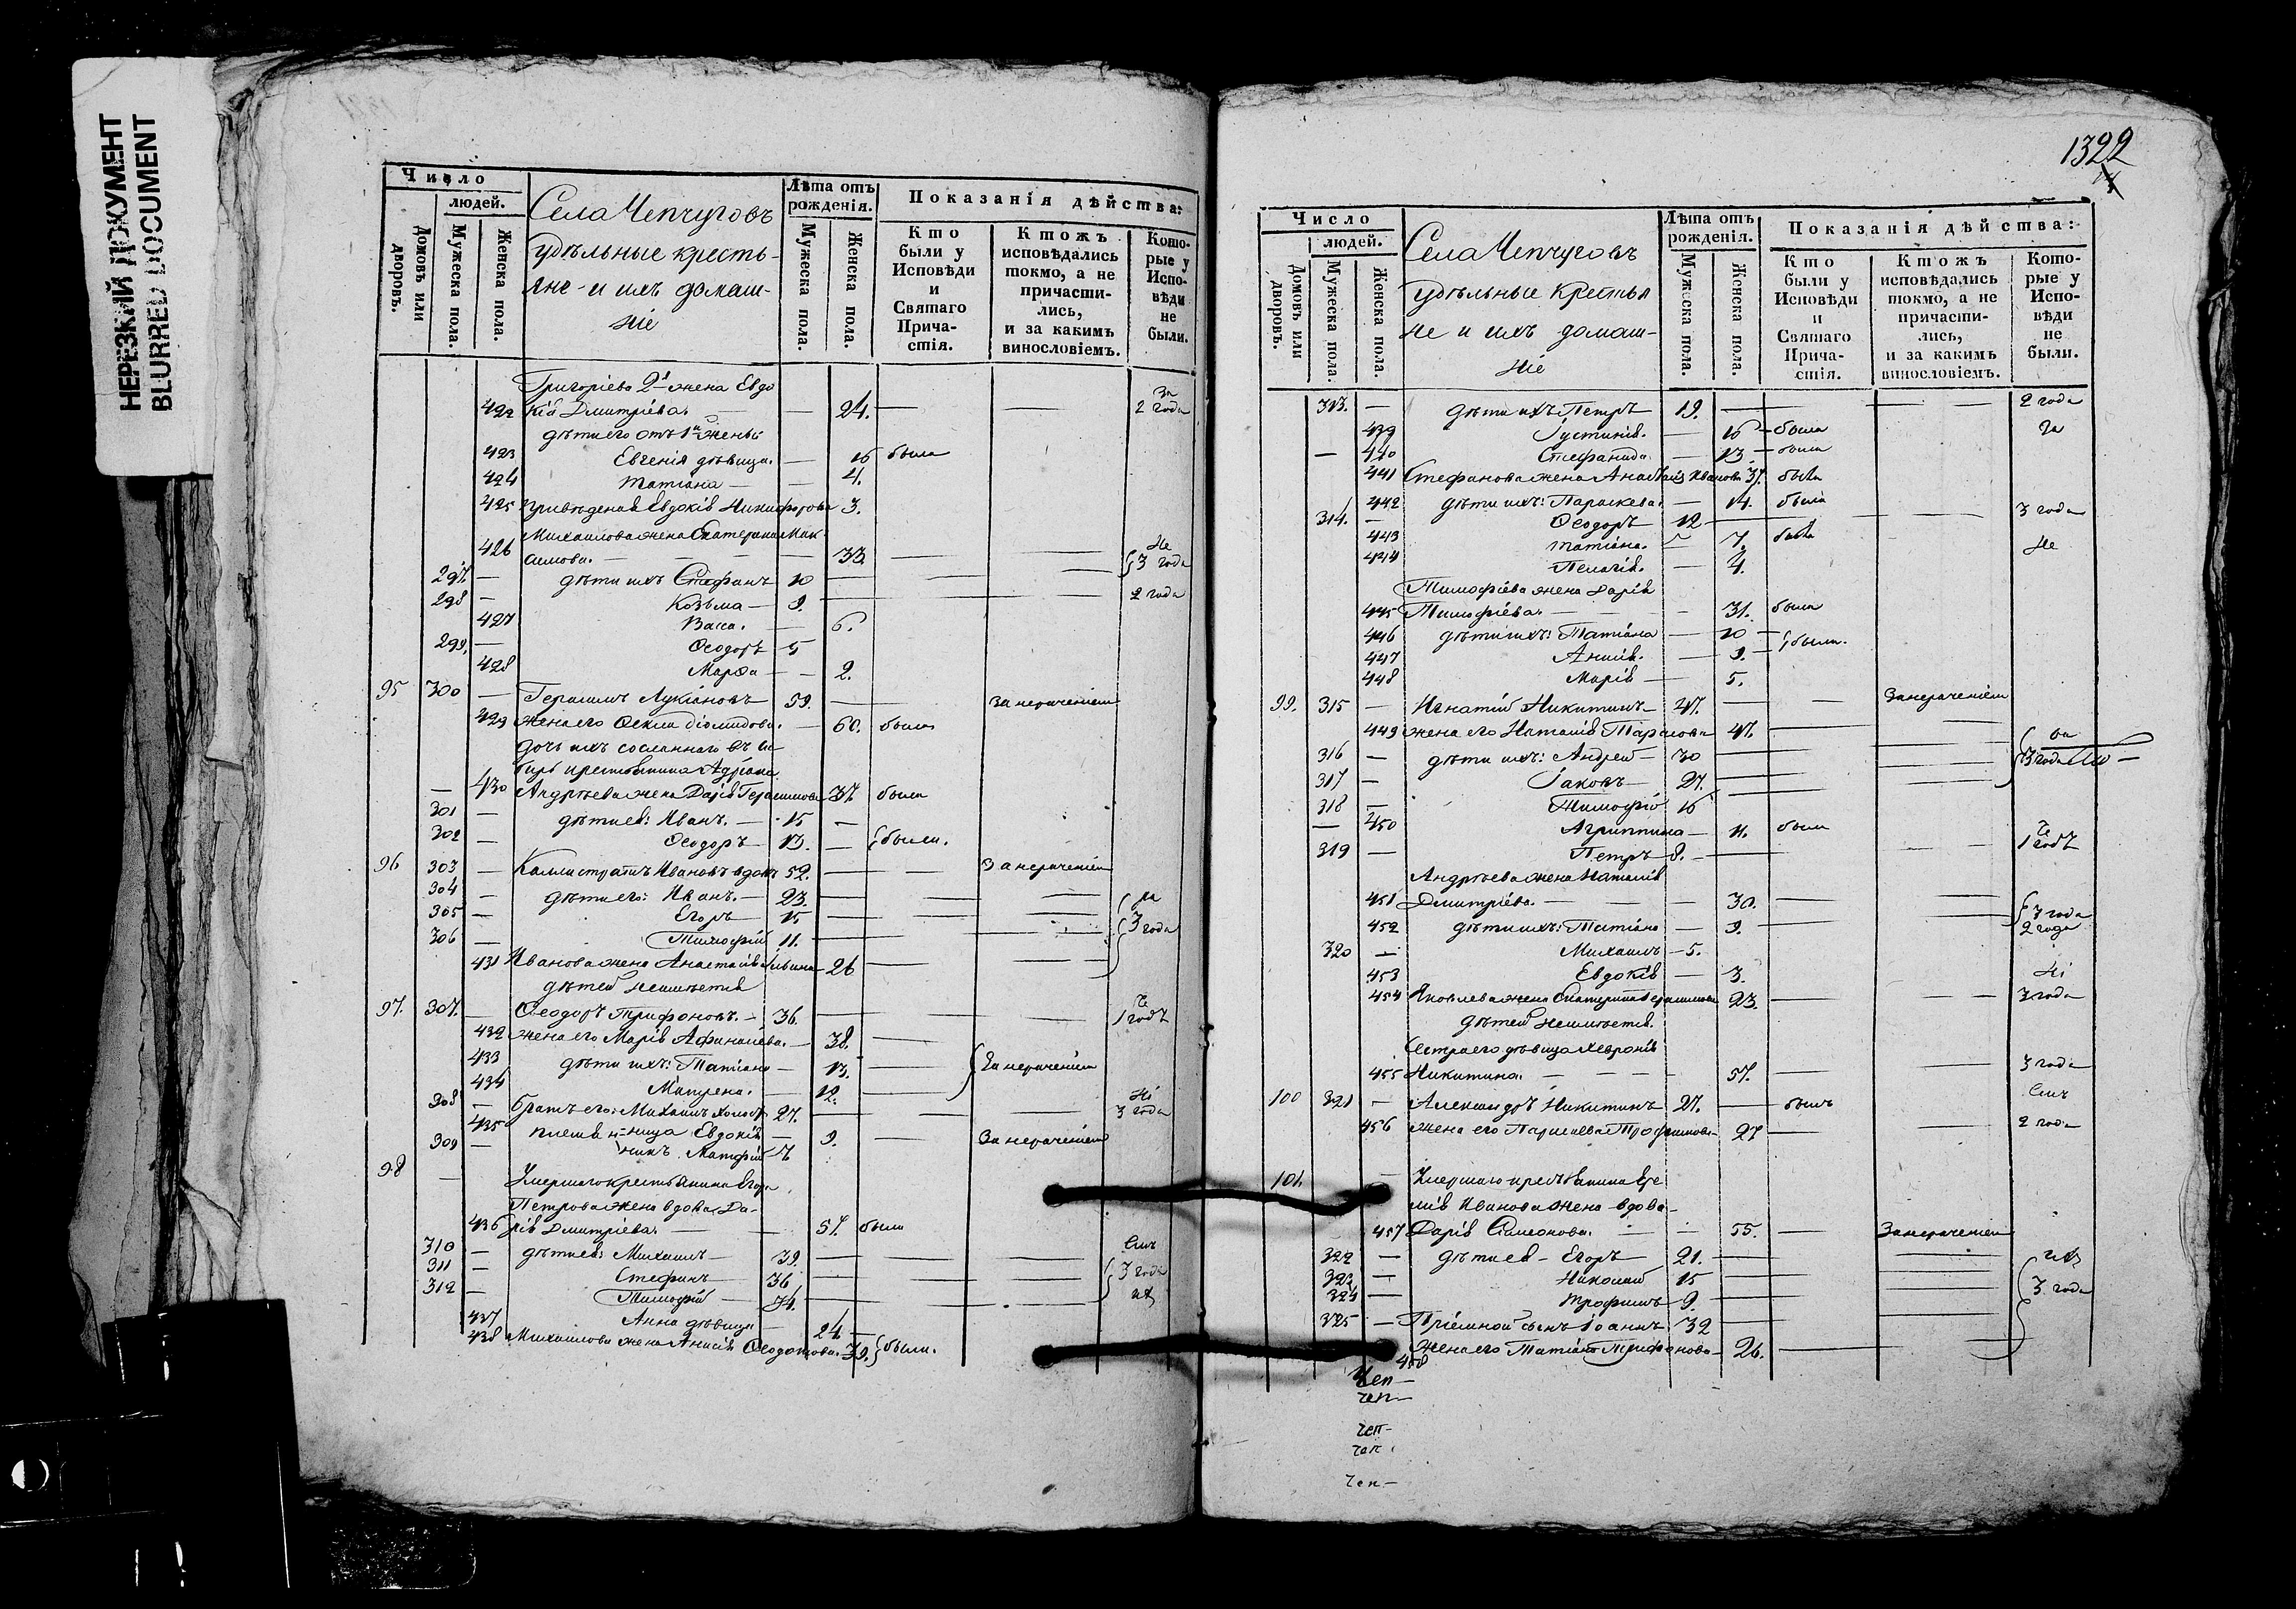 НЕРЕЗКИЙ ДОКУМЕНТ
BLURRED DOCUMENT
Число
людей.
Домовъ или дворовъ.
Мужеска пола.
Женска пола.
Села Чепчуговъ
удѣльные кресть-
яне и ихъ домаш-
ніе
Лѣта отъ рожденія.
Мужеска пола.
Женска пола.
Показанія дѣйства:
Кто были у Исповѣди и Святаго Прича-стія.
Ктожъ исповѣдались токмо, а не причасти-лись, и за какимъ винословіемъ.
Кото-рые у Испо-вѣди не были.
Григоріева 2я жена Евдо
422 кія Дмитріева — — 24. — — 2 года
дѣти его отъ 1й жены
423 Евгенія дѣвица — 16 была
424 Татіана — — 4.
425 Евдокія Никифорова 3.
Михаилова жена Екатерина Мак-
426 симова — — 33. — — 3 года
297. — дѣти ихъ Стефанъ 10 — —
298 — Козьма — 9. — — 2 года
427 Васса. — 6.
299. — Ѳеодоръ 5
428 Марѳа — — 2.
95 300 — Герасимъ Лукіановъ 59. — за нераченіем
429 жена его Ѳекла Діомидова. — 60. была
дочь ихъ сосланнаго въ си
бирь крестьянина Адріана
— 430 Андрѣева жена Дарія Герасимова 37. была
301 — дѣти ея: Иванъ. — 15 —
302 — Ѳеодоръ — 13. — были.
96 303 — Каллистратъ Ивановъ вдовъ 52. — — За нераченіем
304 — дѣти его: Иванъ. — 23. — —
305 — Егоръ 15 — — 3 года
306 — Тимофій 11. — —
431 Иванова жена Анастасія Ильина — 26 — —
дѣтей неимѣетъ
97. 307. — Ѳеодоръ Трифоновъ. — 36. — — 1 годъ
432 жена его Марія Афанасіева. — 38. —
433 дѣти ихъ: Татіана — 13. — За нераченіем
434 Матрена. — 12. —
308 — братъ его: Михаилъ холостъ 27. — — 3 года
435 племян-ница Евдокія — 9. — За нераченіем
309 — никъ Матфій 7
98 — Умершаго крестьянина Егора
Петрова жена вдова Да-
436 рія Дмитріева. — — 57. была
310 — дѣти ея: Михаилъ — 39. — —
311 — Стефанъ 36 — — 3 года
312 — Тимофій — 34. — —
437 Анна дѣвица — 24 —
438 Михаилова жена Анисія Ѳеодотова. 39. были.
1322
Число
людей.
Домовъ или дворовъ.
Мужеска пола.
Женска пола.
Села Чепчуговъ
удѣльные крестья
не и ихъ домаш-
ніе
Лѣта отъ рожденія.
Мужеска пола.
Женска пола.
Показанія дѣйства:
Кто были у Исповѣди и Святаго Прича-стія.
Ктожъ исповѣдались токмо, а не причасти-лись, и за какимъ винословіемъ.
Кото-рые у Испо-вѣди не были.
313. — дѣти ихъ Петръ 19. — — — 2 года
439 Іустинія. — 16 — была
— 440 Стефанида. — 13 — была
441 Стефанова жена Анастасія Иванова 37. была
442 дѣти ихъ: Параскева. — 14. была
314. — Ѳеодоръ 12 — — 3 года
443 Татіана. — 7. была
444 Пелагія. — 4.
Тимофіева жена Дарія
445 Тимофіева. — — 31. была
446 дѣти ихъ: Татіана — 10 — были.
447 Анисія. — 9. —
448 Марія — 5.
99. 315 — Игнатій Никитинъ — 47. — — За нераченіем
449 жена его Наталія Тарасова 47. — —
316 — дѣти ихъ: Андрей — 30 — — 3 года
317 — Іаковъ — 27. — —
318 — Тимофій 16 — —
— 450 Агриппина — 11. была
319 — Петръ 8. — — 1 годъ
Андрѣева жена Наталія
451 Дмитріева. — — 30. — —
452 дѣти ихъ: Татіана — 9. — — 3 года
320 — Михаилъ — 5. 2 года
453 Евдокія — 3.
454 Яковлева жена Екатерина Герасимова 23. — — 3 года
дѣтей неимѣетъ.
Сестра его дѣвица Хевронія
455 Никитина. — — — 57. — — 3 года
100 321 — Александръ Никитинъ 27. — былъ
456 жена его Параскева Трофимова — 27 — — 2 года
101. — Умершаго крестьянина Ере
мія Иванова жена вдова —
457 Дарія Симеонова. — — 55. — За нераченіем
322 — дѣти ея — Егоръ 21. — —
323 — Николай 15 — — 3 года
324 — Трофимъ 9. — —
325 — Пріемной сынъ Іоаннъ 32 — —
458 Жена его Татіана Трифонова — 26. —
Чеп—
чеп—
чеп—
чеп
чеп—